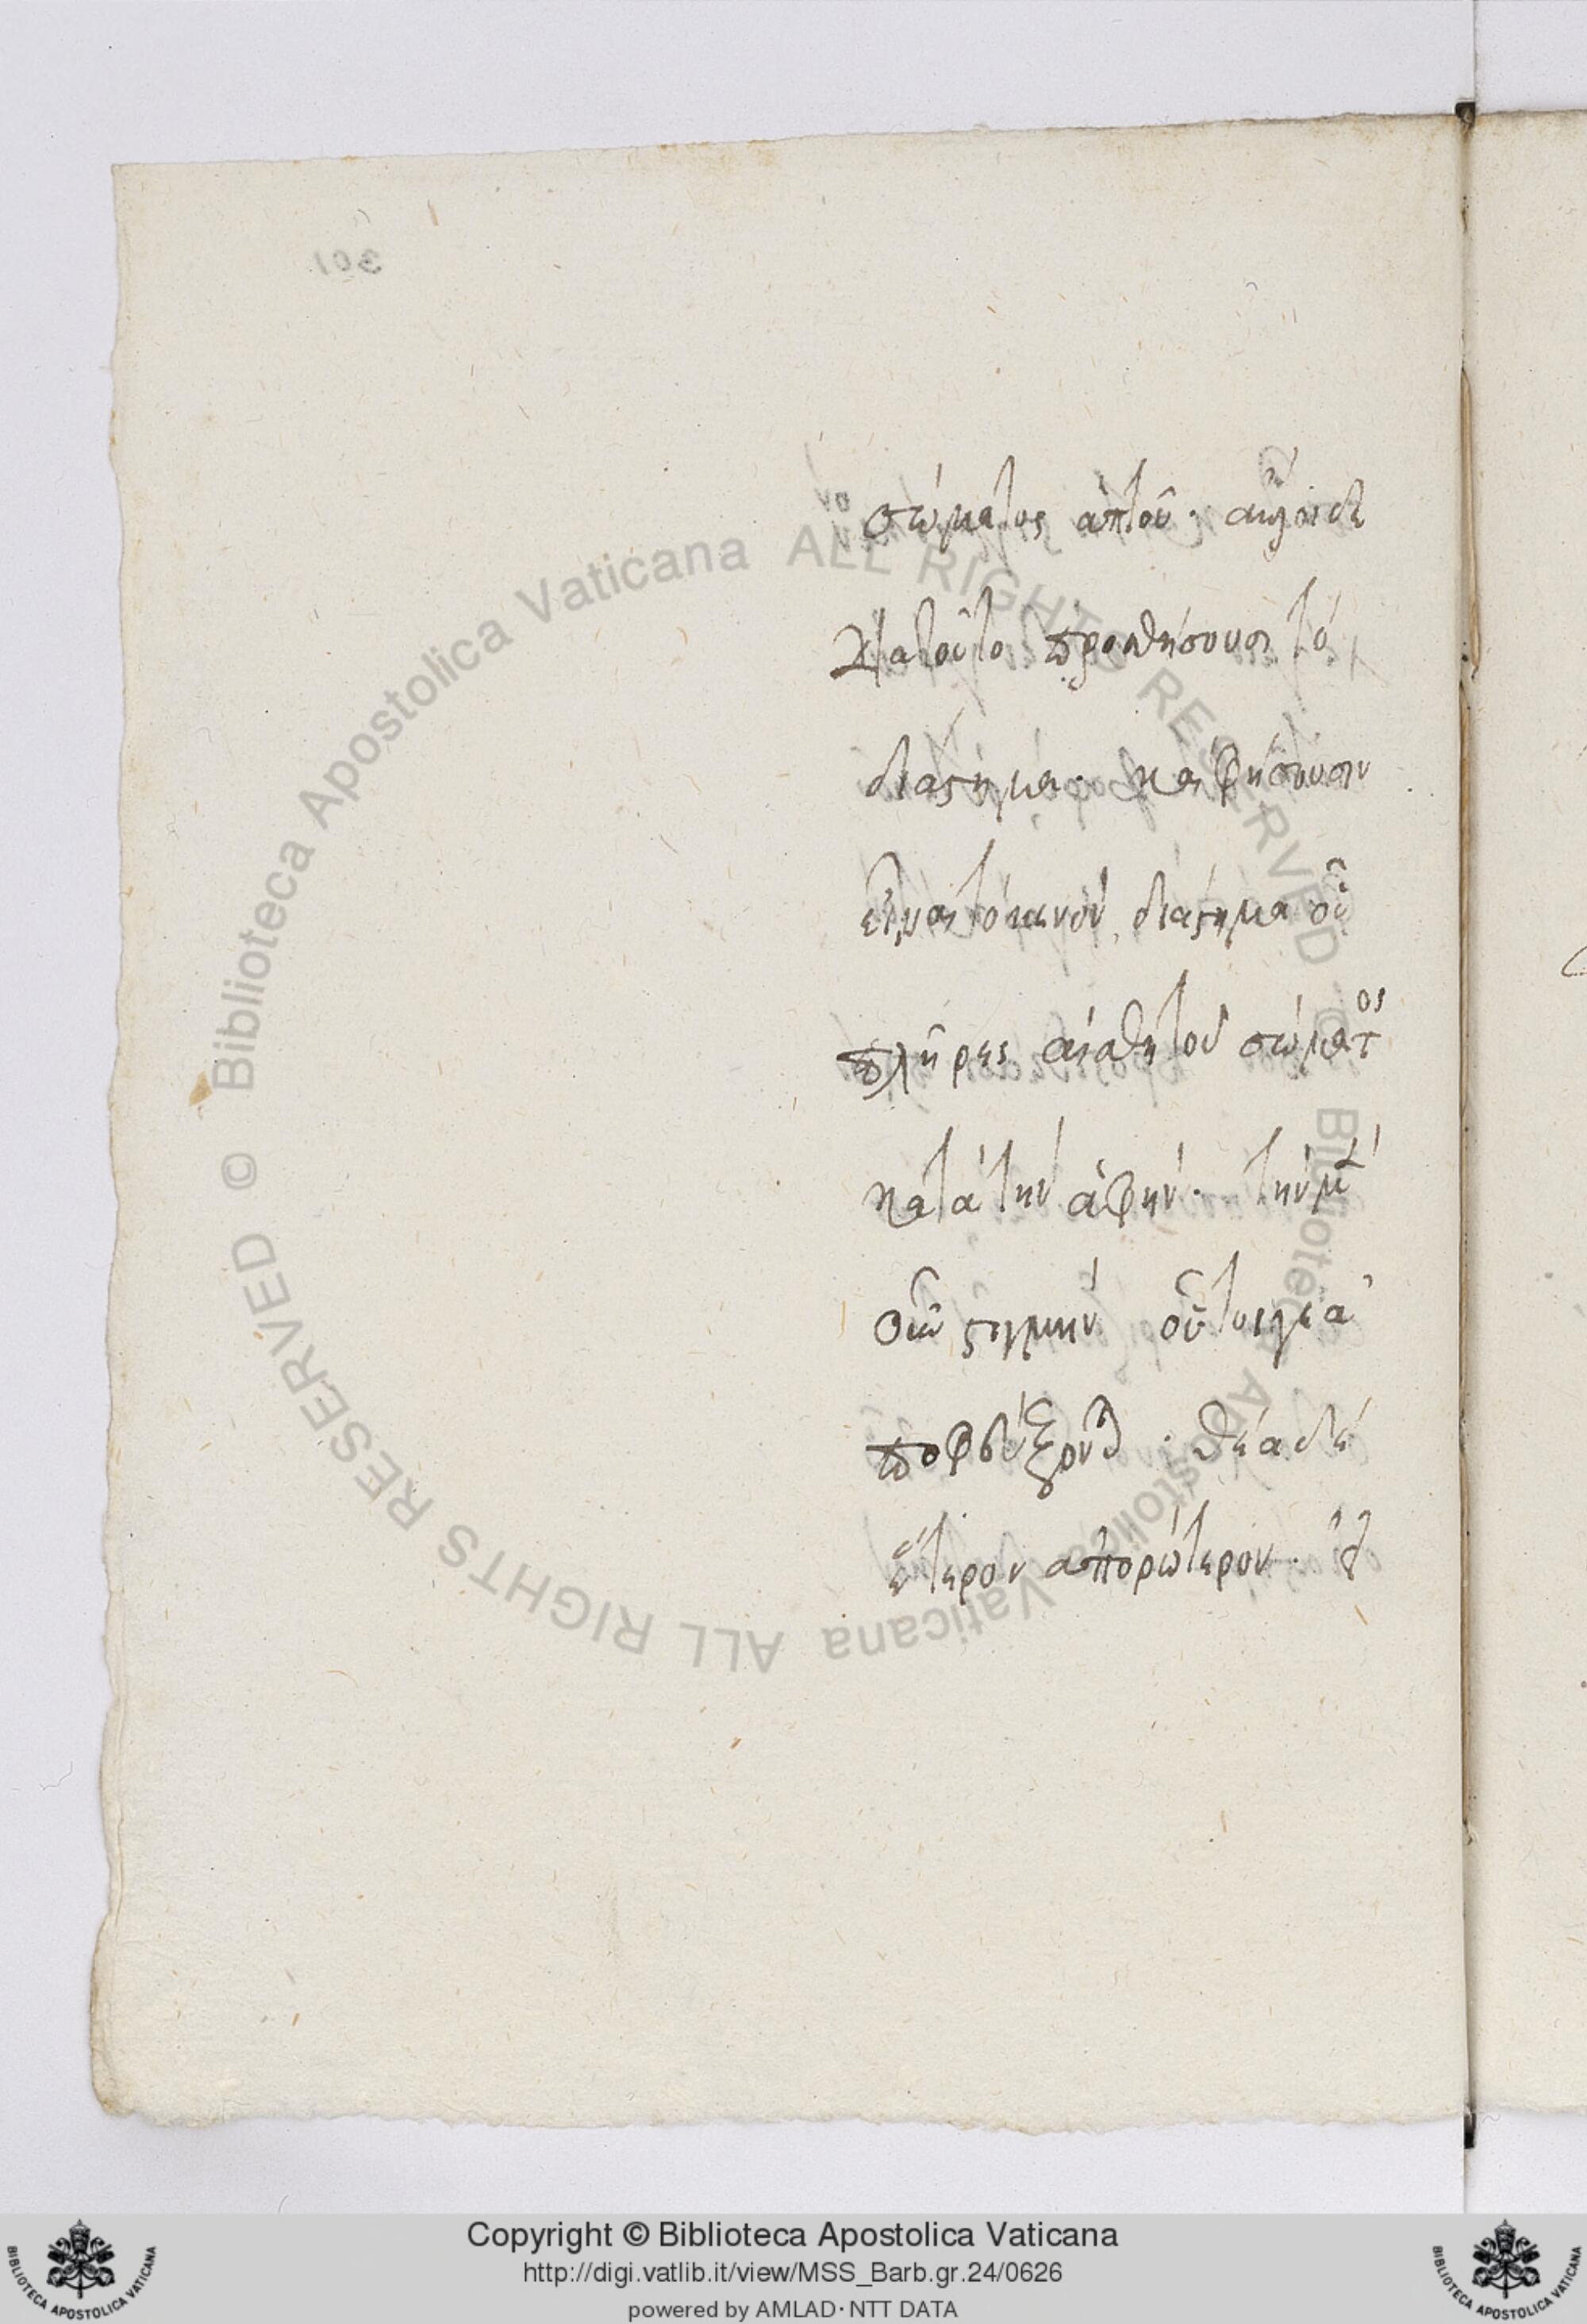 σώματος ἁπτοῦ·
διατοῦτο προσθήσουσι τό
διάστημα· και φήσουσιν
εἶναι τὸ κενόν, διάστημα οὗ
πλῆρες αἰσθητοῦ σώματος
κατὰ τὴν ἁφήν· τὴν μέ
στιγμήν οὕτως γε ἀ
ποφεύξονται · θέα δέ
ἕτερον ἀπορώτερον·
Biblioteca Apostolica Vaticana ALL RIGHTS RESERVED ©
Biblioteca Apostolica Vaticana ALL RIGHTS RESERVED ©
Copyright © Biblioteca Apostolica Vaticana
http://digi.vatlib.it/view/MSS_Barb.gr.24/0626
powered by AMLAD·NTT DATA
BIBLIOTECA APOSTOLICA VATICANA
BIBLIOTECA APOSTOLICA VATICANA